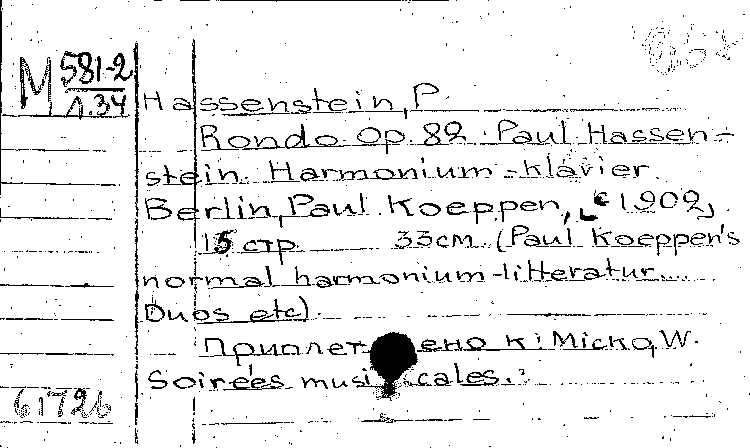 М 581-2
1.34
Hassenstein, P.
Rondo Op. 82. Paul Hassen-
stein. Harmonium-klavier.
Berlin, Paul Koeppen, c 1902,
15 стр 33см. (Paul Koeppen's
normal harmonium-litteratur...
Duos etc)
Приплет ено к: Micko, W.
Soirées musi cales.
61726